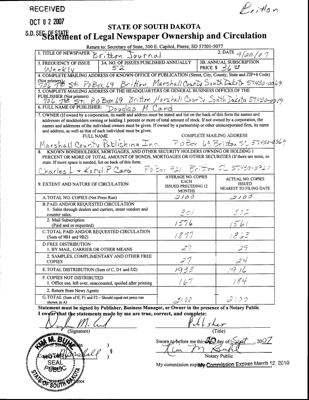 RECEIVED
Britton
OCT 02 2007
S.D. SEC. OF STATE
STATE OF SOUTH DAKOTA
Statement of Legal Newspaper Ownership and Circulation
Return to: Secretary of State, 500 E. Capitol, Pierre, SD 57501-5077
1. TITLE OF NEWSPAPER Britton Journal
2. DATE 9/20/07
3. FREQUENCY OF ISSUE Weekly
3A. NO. OF ISSUES PUBLISHED ANNUALLY 52
3B. ANNUAL SUBSCRIPTION PRICE $ 36
4. COMPLETE MAILING ADDRESS OF KNOWN OFFICE OF PUBLICATION (Street, City, County, State and ZIP+4 Code)
(Not printer)
706 7th St. PO Box 69 Britton Marshall County South Dakota 57430-0069
5. COMPLETE MAILING ADDRESS OF THE HEADQUARTERS OR GENERAL BUSINESS OFFICES OF THE
PUBLISHER (Not printer)
706 7th St. PO Box 69 Britton Marshall County South Dakota 57430-0069
6. FULL NAME OF PUBLISHER: Douglas M Card
7. OWNER (If owned by a corporation, its name and address must be stated and list on the back of this form the names and
addresses of stockholders owning or holding 1 percent or more of total amount of stock. If not owned by a corporation, the
names and addresses of the individual owners must be given. If owned by a partnership or other unincorporated firm, its name
and address, as well as that of each individual must be given.
FULL NAME
COMPLETE MAILING ADDRESS
Marshall County Publishing Inc. PO Box 69 Britton SD 57430-0069
8. KNOWN BONDHOLDERS, MORTGAGES, AND OTHER SECURITY HOLDERS OWNING OR HOLDING 1
PERCENT OR MORE OF TOTAL AMOUNT OF BONDS, MORTGAGES OR OTHER SECURITIES (If there are none, so
state. If more space is needed, list on back of this form.
Charles L & Karyl P Card
9. EXTENT AND NATURE OF CIRCULATION
AVERAGE NO. COPIES EACH ISSUED PRECEDING 12 MONTHS
ACTUAL NO. COPIES ISSUED NEAREST TO FILING DATE
A. TOTAL NO. COPIES (Net Press Run) 2100 2100
B. PAID AND/OR REQUESTED CIRCULATION
1. Sales through dealers and carriers, street vendors and
counter sales. 301
2. Mail Subscription
(Paid and or requested) 1576 1561
C. TOTAL PAID AND/OR REQUESTED CIRCULATION
(Sum of 9B1 and 9B2) 1877
D. FREE DISTRIBUTION
1. BY MAIL, CARRIER OR OTHER MEANS 29 29
2. SAMPLES, COMPLIMENTARY AND OTHER FREE
COPIES 27 24
E. TOTAL DISTRIBUTION (Sum of C, D1 and D2) 1933 1916
F. COPIES NOT DISTRIBUTED
1. Office use, left over, unaccounted, spoiled after printing 167 184
2. Return from News Agents
G. TOTAL (Sum of E, F1 and F2 – Should equal net press run
shown in A) 2100 2100
Statement must be signed by Publisher, Business Manager, or Owner in the presence of a Notary Public
I swear that the statements made by me are true, correct, and complete:
Publisher
(Signature)
(Title)
Sworn to before me this 20 day of Sept. 2007
Notary Public
My commission expires My Commission Expires March 12, 2010
NOTARY
SEAL
PUBLIC
STATE OF SOUTH DAKOTA